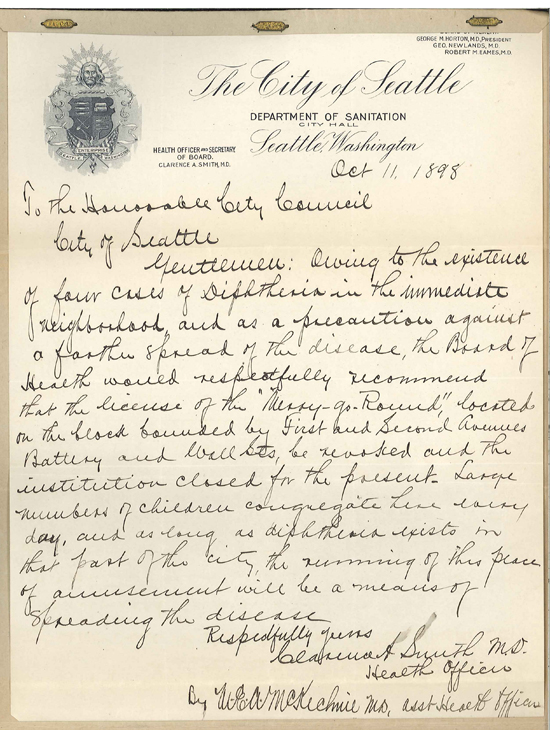 GEORGE M. HORTON, M.D., PRESIDENT
GEO. NEWLANDS, M.D.
ROBERT M. EAMES, M.D.
The City of Seattle
DEPARTMENT OF SANITATION
CITY HALL
HEALTH OFFICER AND SECRETARY
OF BOARD.
CLARENCE A. SMITH, M.D.
Seattle, Washington
Oct 11, 1898
To the Honorable City Council
City of Seattle
Gentlemen: Owing to the existence
of four cases of Diphtheria in the immediate
neighborhood, and as a precaution against
a farther spread of the disease, the Board of
Health would respectfully recommend
that the license of the "Merry-go-Round", located
on the block bounded by First and Second Avenues
Battery and Wall Sts, be revoked and the
institution closed for the present. Large
numbers of children congregate here every
day, and as long as diphtheria exists in
that part of the city, the running of this place
of amusement will be a means of
spreading the disease
Respectfully yours
Clarence A Smith M.D.
Health Officer
By W.E.A. McKechnie M.D., asst Health Officer